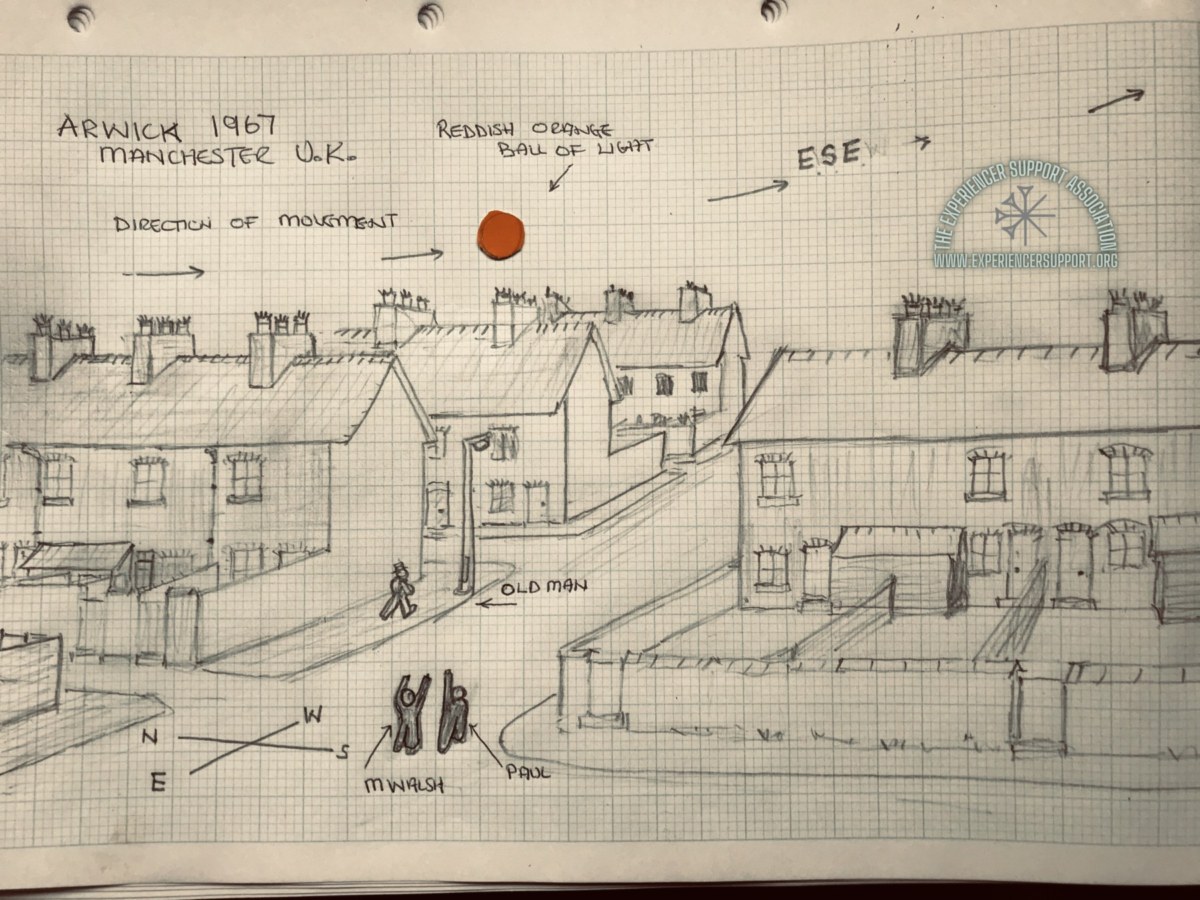 ARWICK 1967
MANCHESTER U.K.
REDDISH ORANGE
BALL OF LIGHT
ESE
DIRECTION OF MOVEMENT
THE EXPERIENCER SUPPORT ASSOCIATION
WWW.EXPERIENCERSUPPORT.ORG
OLD MAN
N
W
S
E
M WALSH
PAUL